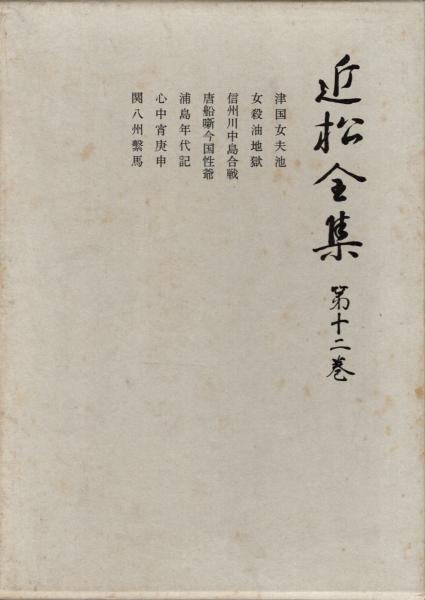 近松全集 第十二巻
津国女夫池
女殺油地獄
信州川中島合戦
唐船噺今国性爺
浦島年代記
心中宵庚申
関八州繫馬